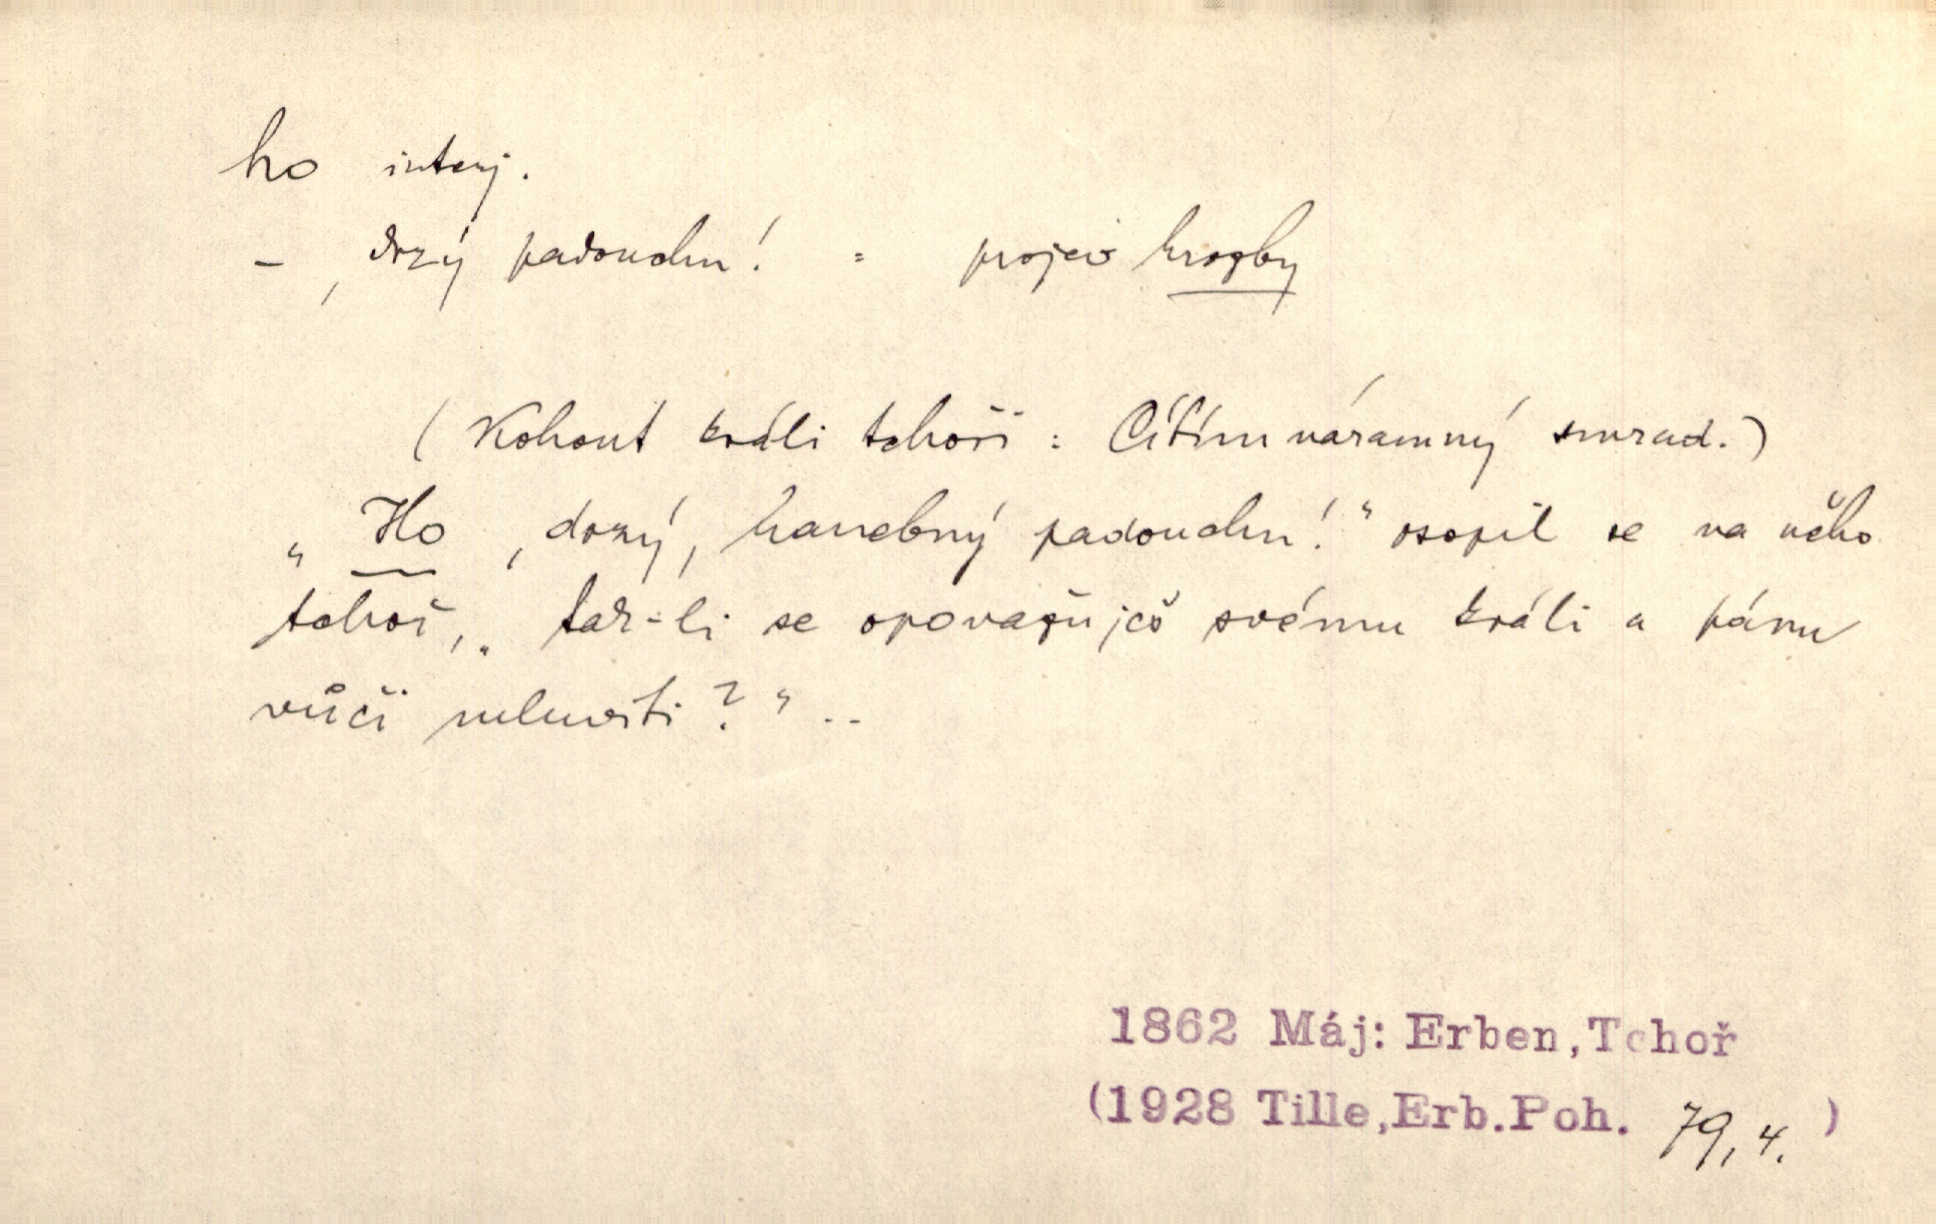 ho interj.
– , drzý padouchu! = projev hrozby
(Kohout králi tchoři : Cítím náramný smrad.)
„ Ho , drzý, hanebný padouchu!" osopil se na něho
tchoř, „ tak-li se opovažuješ svému králi a pánu
vůči mluviti ? " ..
1862 Máj: Erben,Tchoř
(1928 Tille,Erb.Poh. 79, 4. )